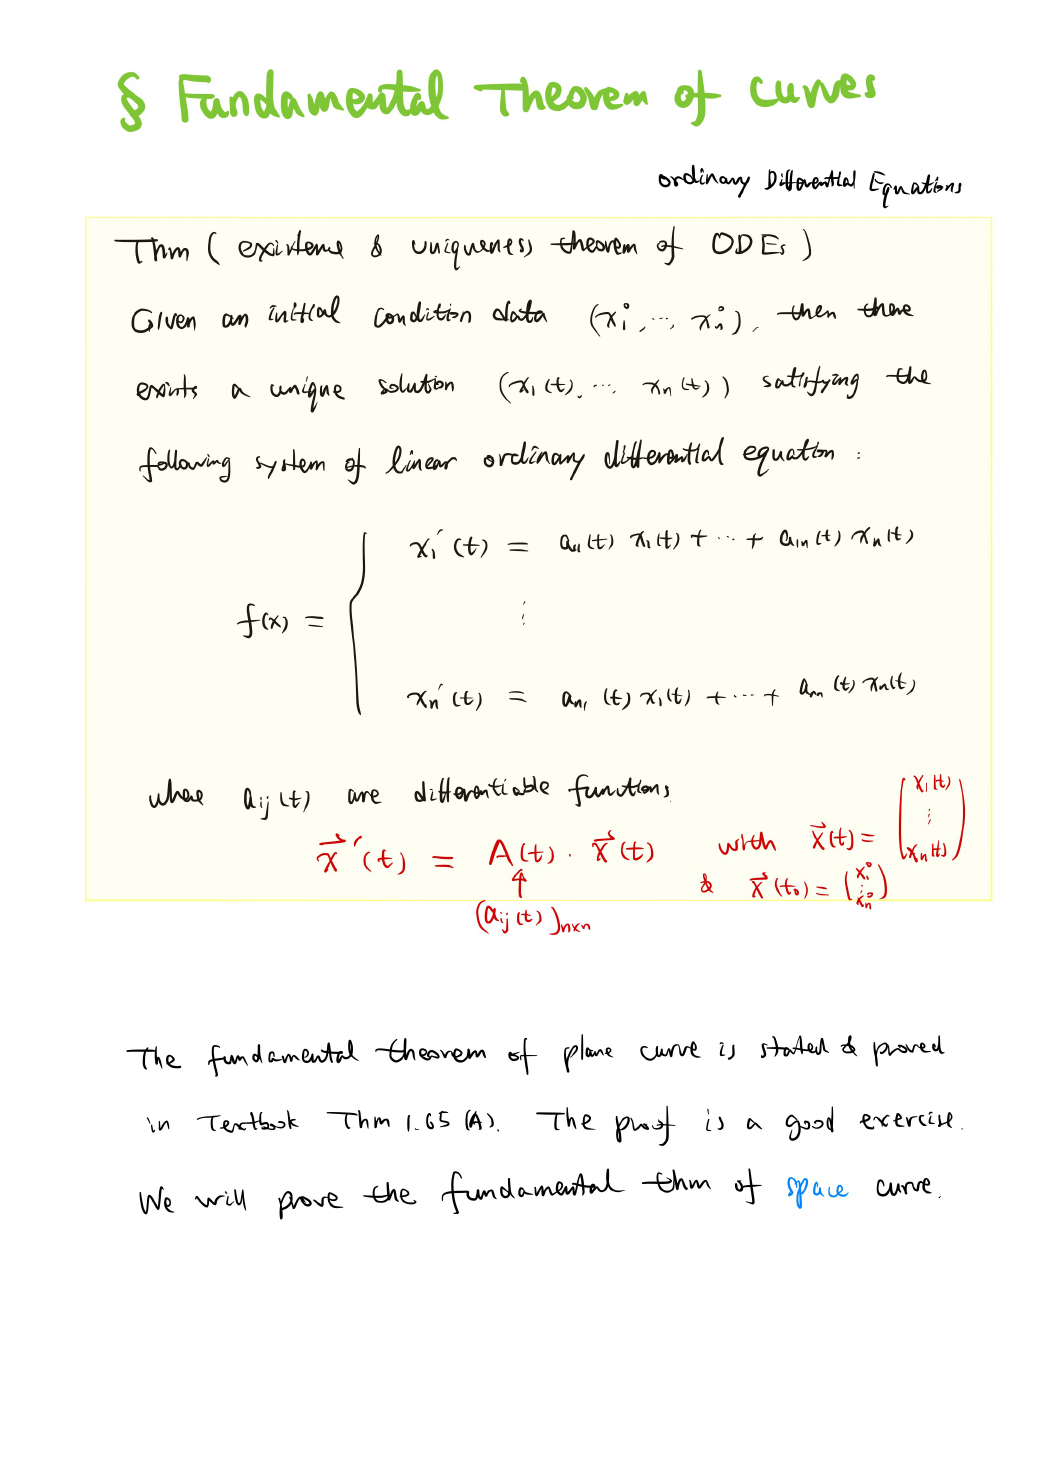 § Fundamental Theorem of curves
ordinary Differential Equations
Thm ( existence & uniqueness theorem of ODEs )
Given an initial condition data (x₁⁰, ..., xₙ⁰), then there
exists a unique solution (x₁(t), ... xₙ(t)) satisfying the
following system of linear ordinary differential equation :
x₁′(t) = a₁₁(t) x₁(t) + ... + a₁ₙ(t) xₙ(t)
f(x) = { ⋮
xₙ′(t) = aₙ₁(t) x₁(t) + ... + aₙₙ(t) xₙ(t)
where aᵢⱼ(t) are differentiable functions.
x⃗′(t) = A(t) · x⃗(t) with x⃗(t) = (x₁(t) ⋮ xₙ(t))
& x⃗(t₀) = (x₁⁰ ⋮ xₙ⁰)
↑
(aᵢⱼ(t))ₙₓₙ
The fundamental theorem of plane curve is stated & proved
in Textbook Thm 1.65 (A). The proof is a good exercise.
We will prove the fundamental thm of space curve.